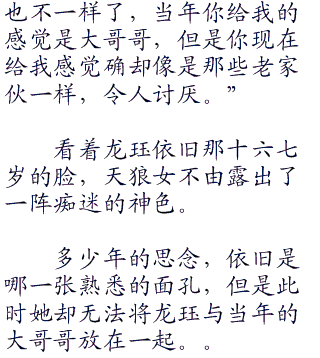 也不一样了，当年你给我的
感觉是大哥哥，但是你现在
给我感觉确却像是那些老家
伙一样，令人讨厌。”
看着龙珏依旧那十六七
岁的脸，天狼女不由露出了
一阵痴迷的神色。
多少年的思念，依旧是
哪一张熟悉的面孔，但是此
时她却无法将龙珏与当年的
大哥哥放在一起。。